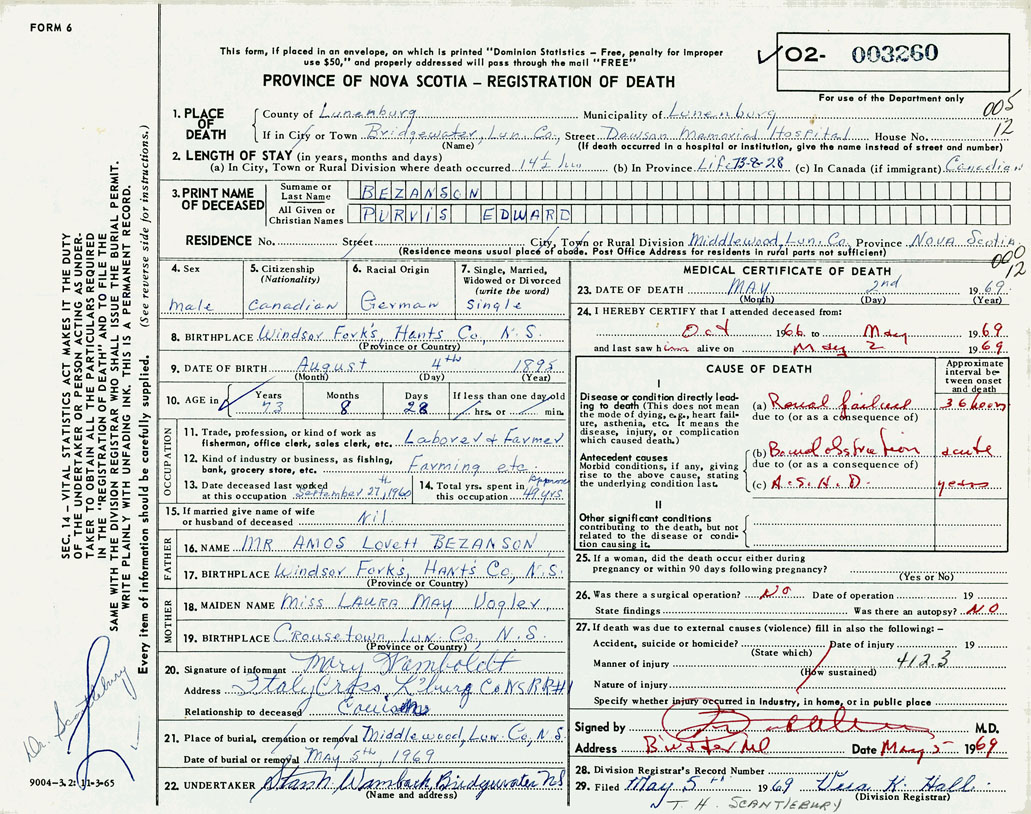 FORM 6
This form, if placed in an envelope, on which is printed "Dominion Statistics – Free, penalty for improper
use $50," and properly addressed will pass through the mail "FREE"
02- 003260
For use of the Department only
PROVINCE OF NOVA SCOTIA – REGISTRATION OF DEATH
005
12
1. PLACE OF DEATH
County of Lunenburg Municipality of Lunenburg
If in City or Town Bridgewater, Lun. Co. Street Dawson Memorial Hospital House No.
(Name) (If death occurred in a hospital or institution, give the name instead of street and number)
2. LENGTH OF STAY (in years, months and days)
(a) In City, Town or Rural Division where death occurred 14½ (b) In Province Life 73-8-28 (c) In Canada (if immigrant) Canadian
3. PRINT NAME OF DECEASED
Surname or Last Name BEZANSON
All Given or Christian Names PURVIS EDWARD
RESIDENCE No. Street City, Town or Rural Division Middlewood, Lun. Co. Province Nova Scotia
(Residence means usual place of abode. Post Office Address for residents in rural parts not sufficient)
000
12
4. Sex
male
5. Citizenship
(Nationality)
Canadian
6. Racial Origin
German
7. Single, Married,
Widowed or Divorced
(write the word)
Single
8. BIRTHPLACE Windsor Fork's, Hants Co., N.S.
(Province or Country)
9. DATE OF BIRTH August 4th 1895
(Month) (Day) (Year)
10. AGE in
Years Months Days If less than one day old
73 8 28 hrs. or min.
OCCUPATION
11. Trade, profession, or kind of work as
fisherman, office clerk, sales clerk, etc. Laborer & Farmer
12. Kind of industry or business, as fishing,
bank, grocery store, etc. Farming etc.
13. Date deceased last worked
at this occupation September 27th, 1960
14. Total yrs. spent in
this occupation 49 yrs.
15. If married give name of wife
or husband of deceased Nil.
FATHER
16. NAME MR AMOS Lovett BEZANSON,
17. BIRTHPLACE Windsor Fork's, HANTS Co, N.S.
(Province or Country)
MOTHER
18. MAIDEN NAME Miss LAURA MAY Vogler,
19. BIRTHPLACE Crousetown, Lun. Co., N.S.
(Province or Country)
20. Signature of informant Mary Wamboldt
Address Italy Cross L'burg Co NS RR#1
Relationship to deceased
21. Place of burial, cremation or removal Middlewood, Lun. Co, N.S.
Date of burial or removal May 5th, 1969
22. UNDERTAKER Wamback, Bridgewater NS
(Name and address)
MEDICAL CERTIFICATE OF DEATH
23. DATE OF DEATH MAY 2nd 1969.
(Month) (Day) (Year)
24. I HEREBY CERTIFY that I attended deceased from:
Oct 1966 to May 1969
and last saw him alive on May 2 1969
CAUSE OF DEATH
Approximate
interval be-
tween onset
and death
I
Disease or condition directly lead-
ing to death (This does not mean
the mode of dying, e.g., heart fail-
ure, asthenia, etc. It means the
disease, injury, or complication
which caused death.)
(a) Renal failure 36 hours
due to (or as a consequence of)
Antecedent causes
Morbid conditions, if any, giving
rise to the above cause, stating
the underlying condition last.
(b) Bowel obstruction acute
due to (or as a consequence of)
(c) A.S.H.D. years
II
Other significant conditions
contributing to the death, but not
related to the disease or condi-
tion causing it.
25. If a woman, did the death occur either during
pregnancy or within 90 days following pregnancy?
(Yes or No)
26. Was there a surgical operation? NO Date of operation 19
State findings Was there an autopsy? NO
27. If death was due to external causes (violence) fill in also the following: –
Accident, suicide or homicide? Date of injury 19
(State which)
Manner of injury 412.3
(How sustained)
Nature of injury
Specify whether injury occurred in Industry, in home, or in public place
Signed by M.D.
Address Date May 5 1969
28. Division Registrar's Record Number
29. Filed May 5th 1969 Vera K. Hall
(Division Registrar)
T. H. SCANTLEBURY
SEC. 14 – VITAL STATISTICS ACT MAKES IT THE DUTY
OF THE UNDERTAKER OR PERSON ACTING AS UNDER-
TAKER TO OBTAIN ALL THE PARTICULARS REQUIRED
IN THE "REGISTRATION OF DEATH" AND TO FILE THE
SAME WITH THE DIVISION REGISTRAR WHO SHALL ISSUE THE BURIAL PERMIT.
WRITE PLAINLY WITH UNFADING INK. THIS IS A PERMANENT RECORD.
Every item of information should be carefully supplied. (See reverse side for instructions.)
Dr. Scantlebury
9004-3.2: 11-3-65